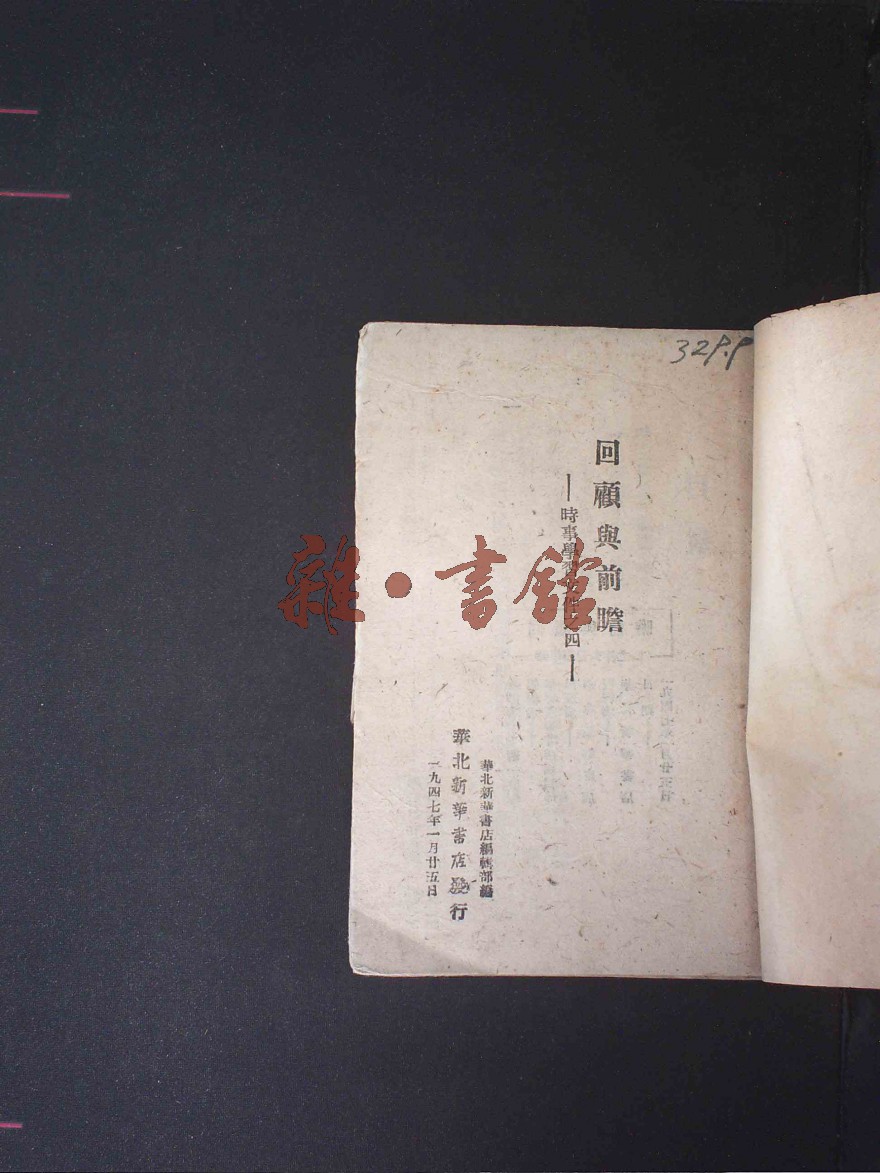 32p.p
回顧與前瞻
—時事學習 四—
華北新華書店編輯部編
華北新華書店發行
一九四七年一月廿五日
雜·書館